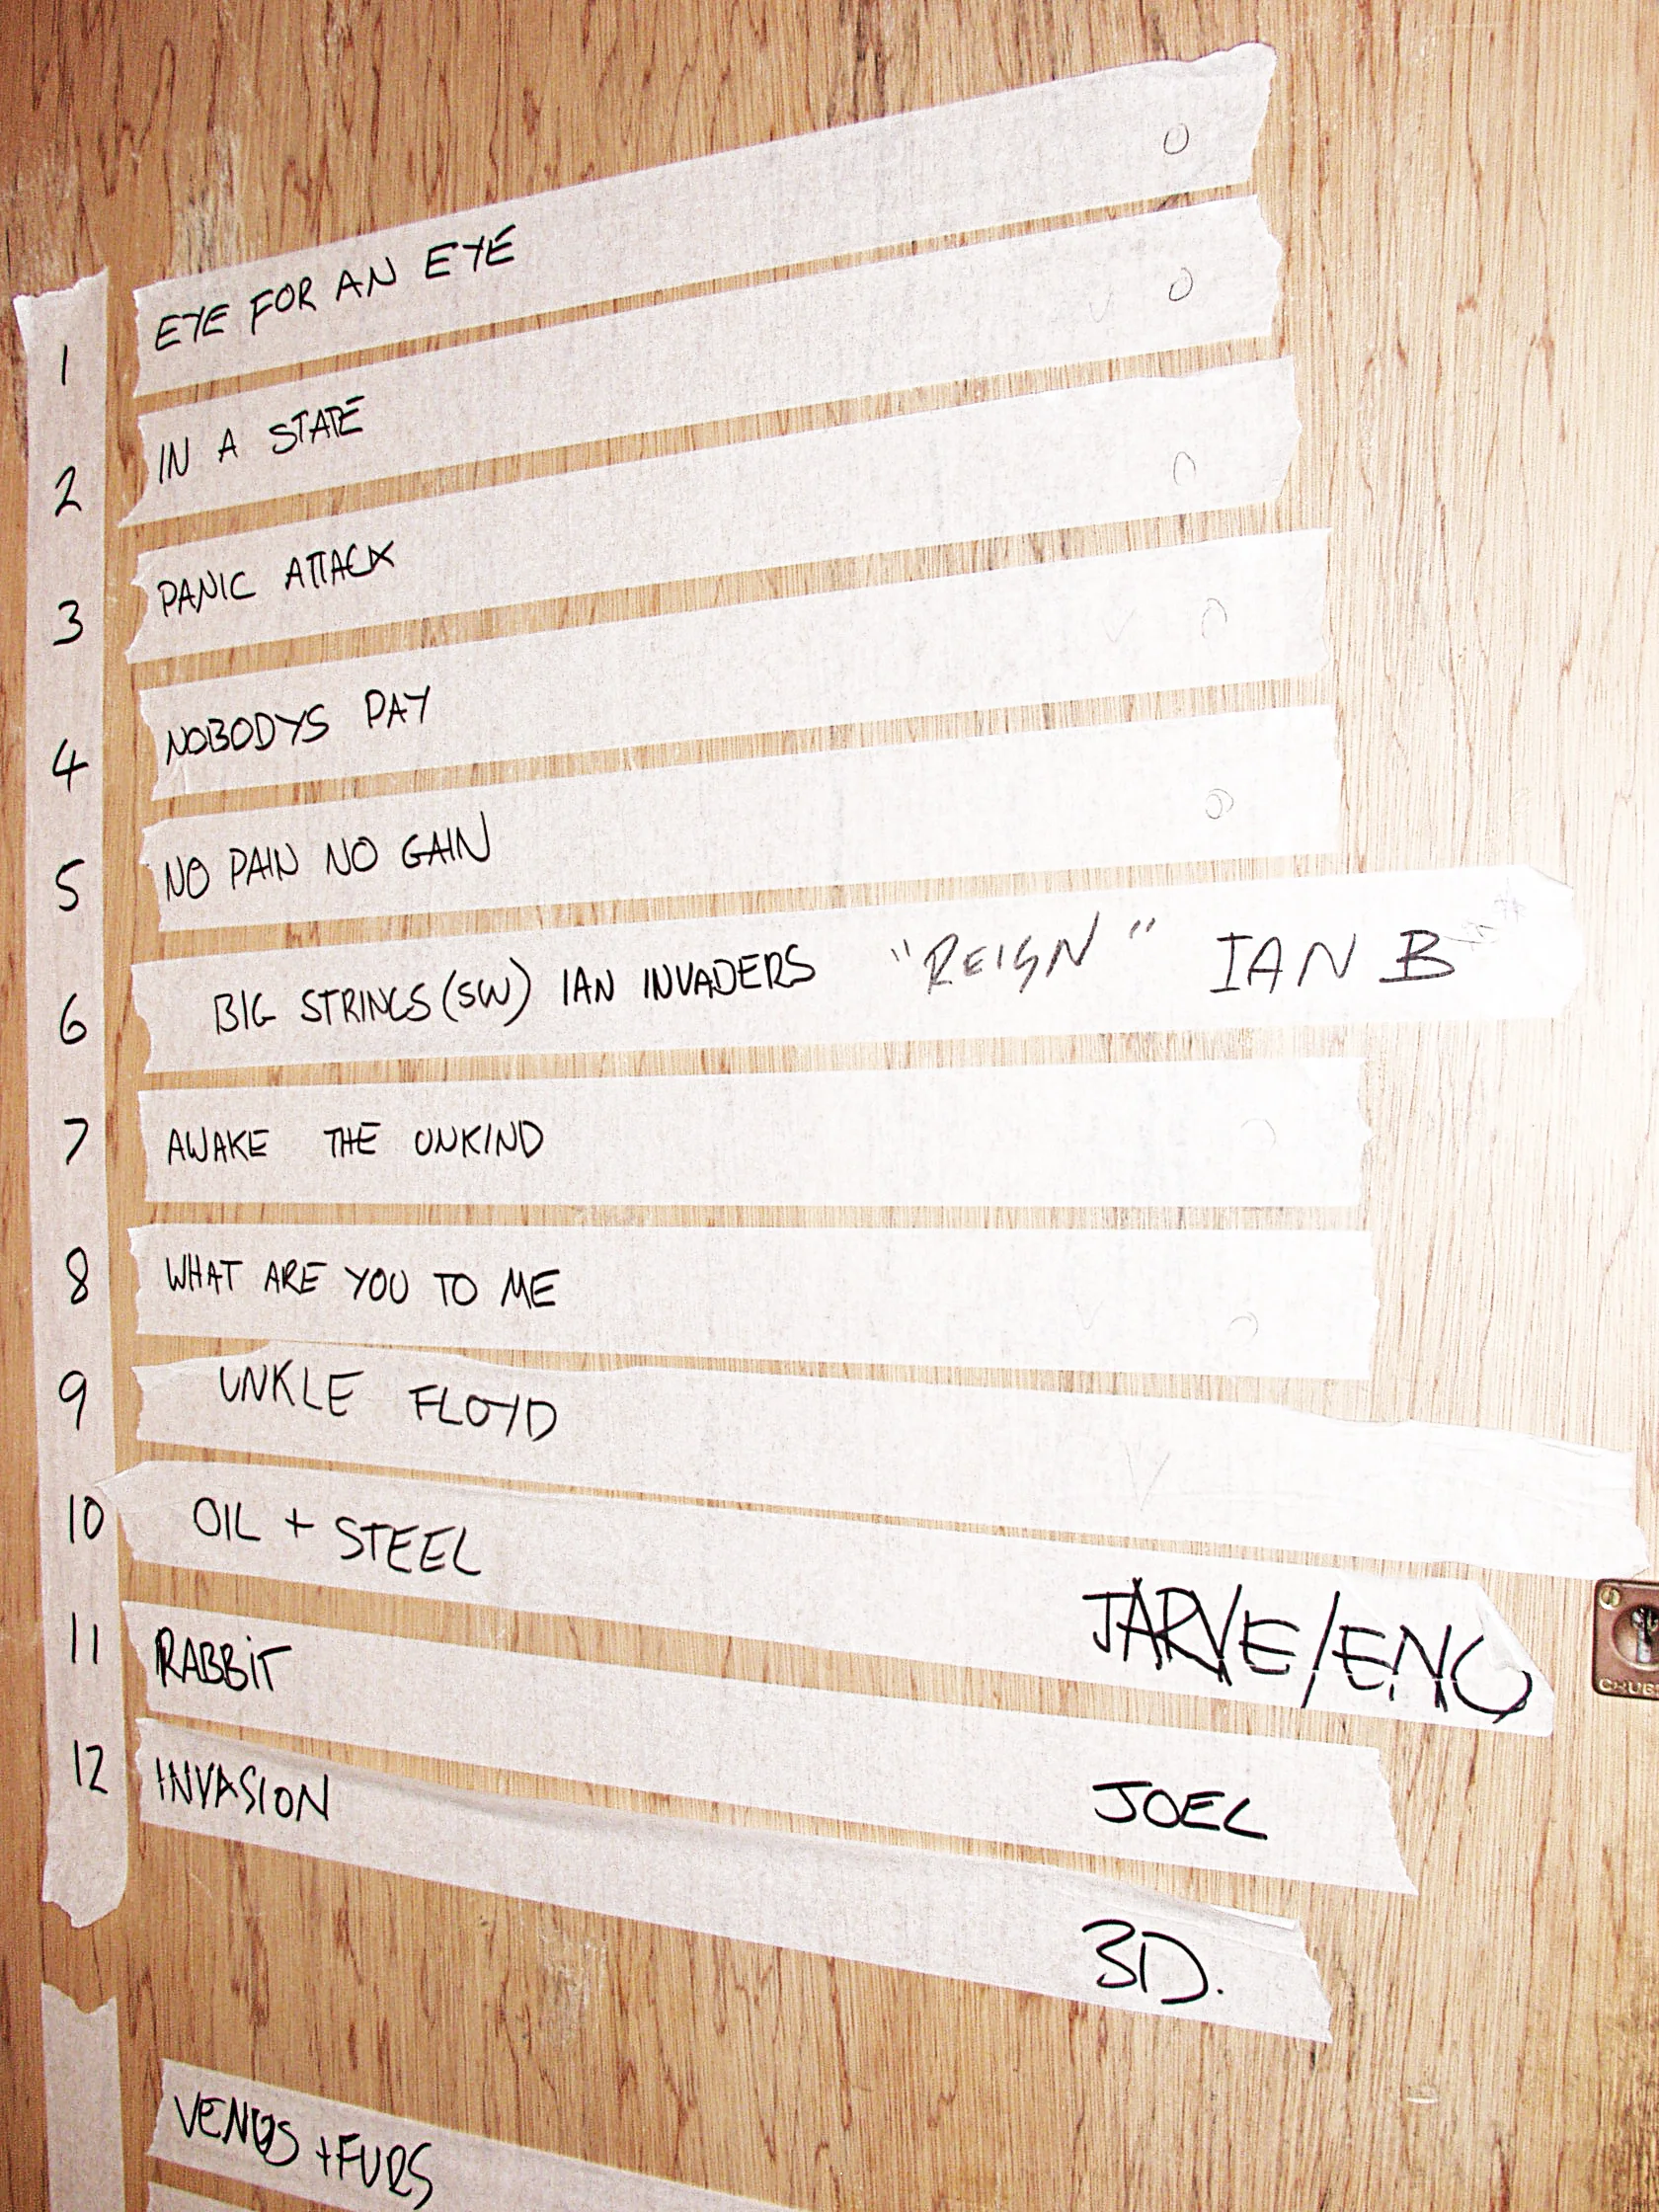 1 EYE FOR AN EYE O
2 IN A STATE V O
3 PANIC ATTACK O
4 NOBODYS PAY V O
5 NO PAIN NO GAIN O
6 BIG STRINGS (SW) IAN INVADERS "REIGN" IAN B
7 AWAKE THE UNKIND
8 WHAT ARE YOU TO ME V O
9 UNKLE FLOYD V
10 OIL + STEEL JARVE/ENO
11 RABBIT JOEL
12 INVASION 3D.
VENUS + FURS